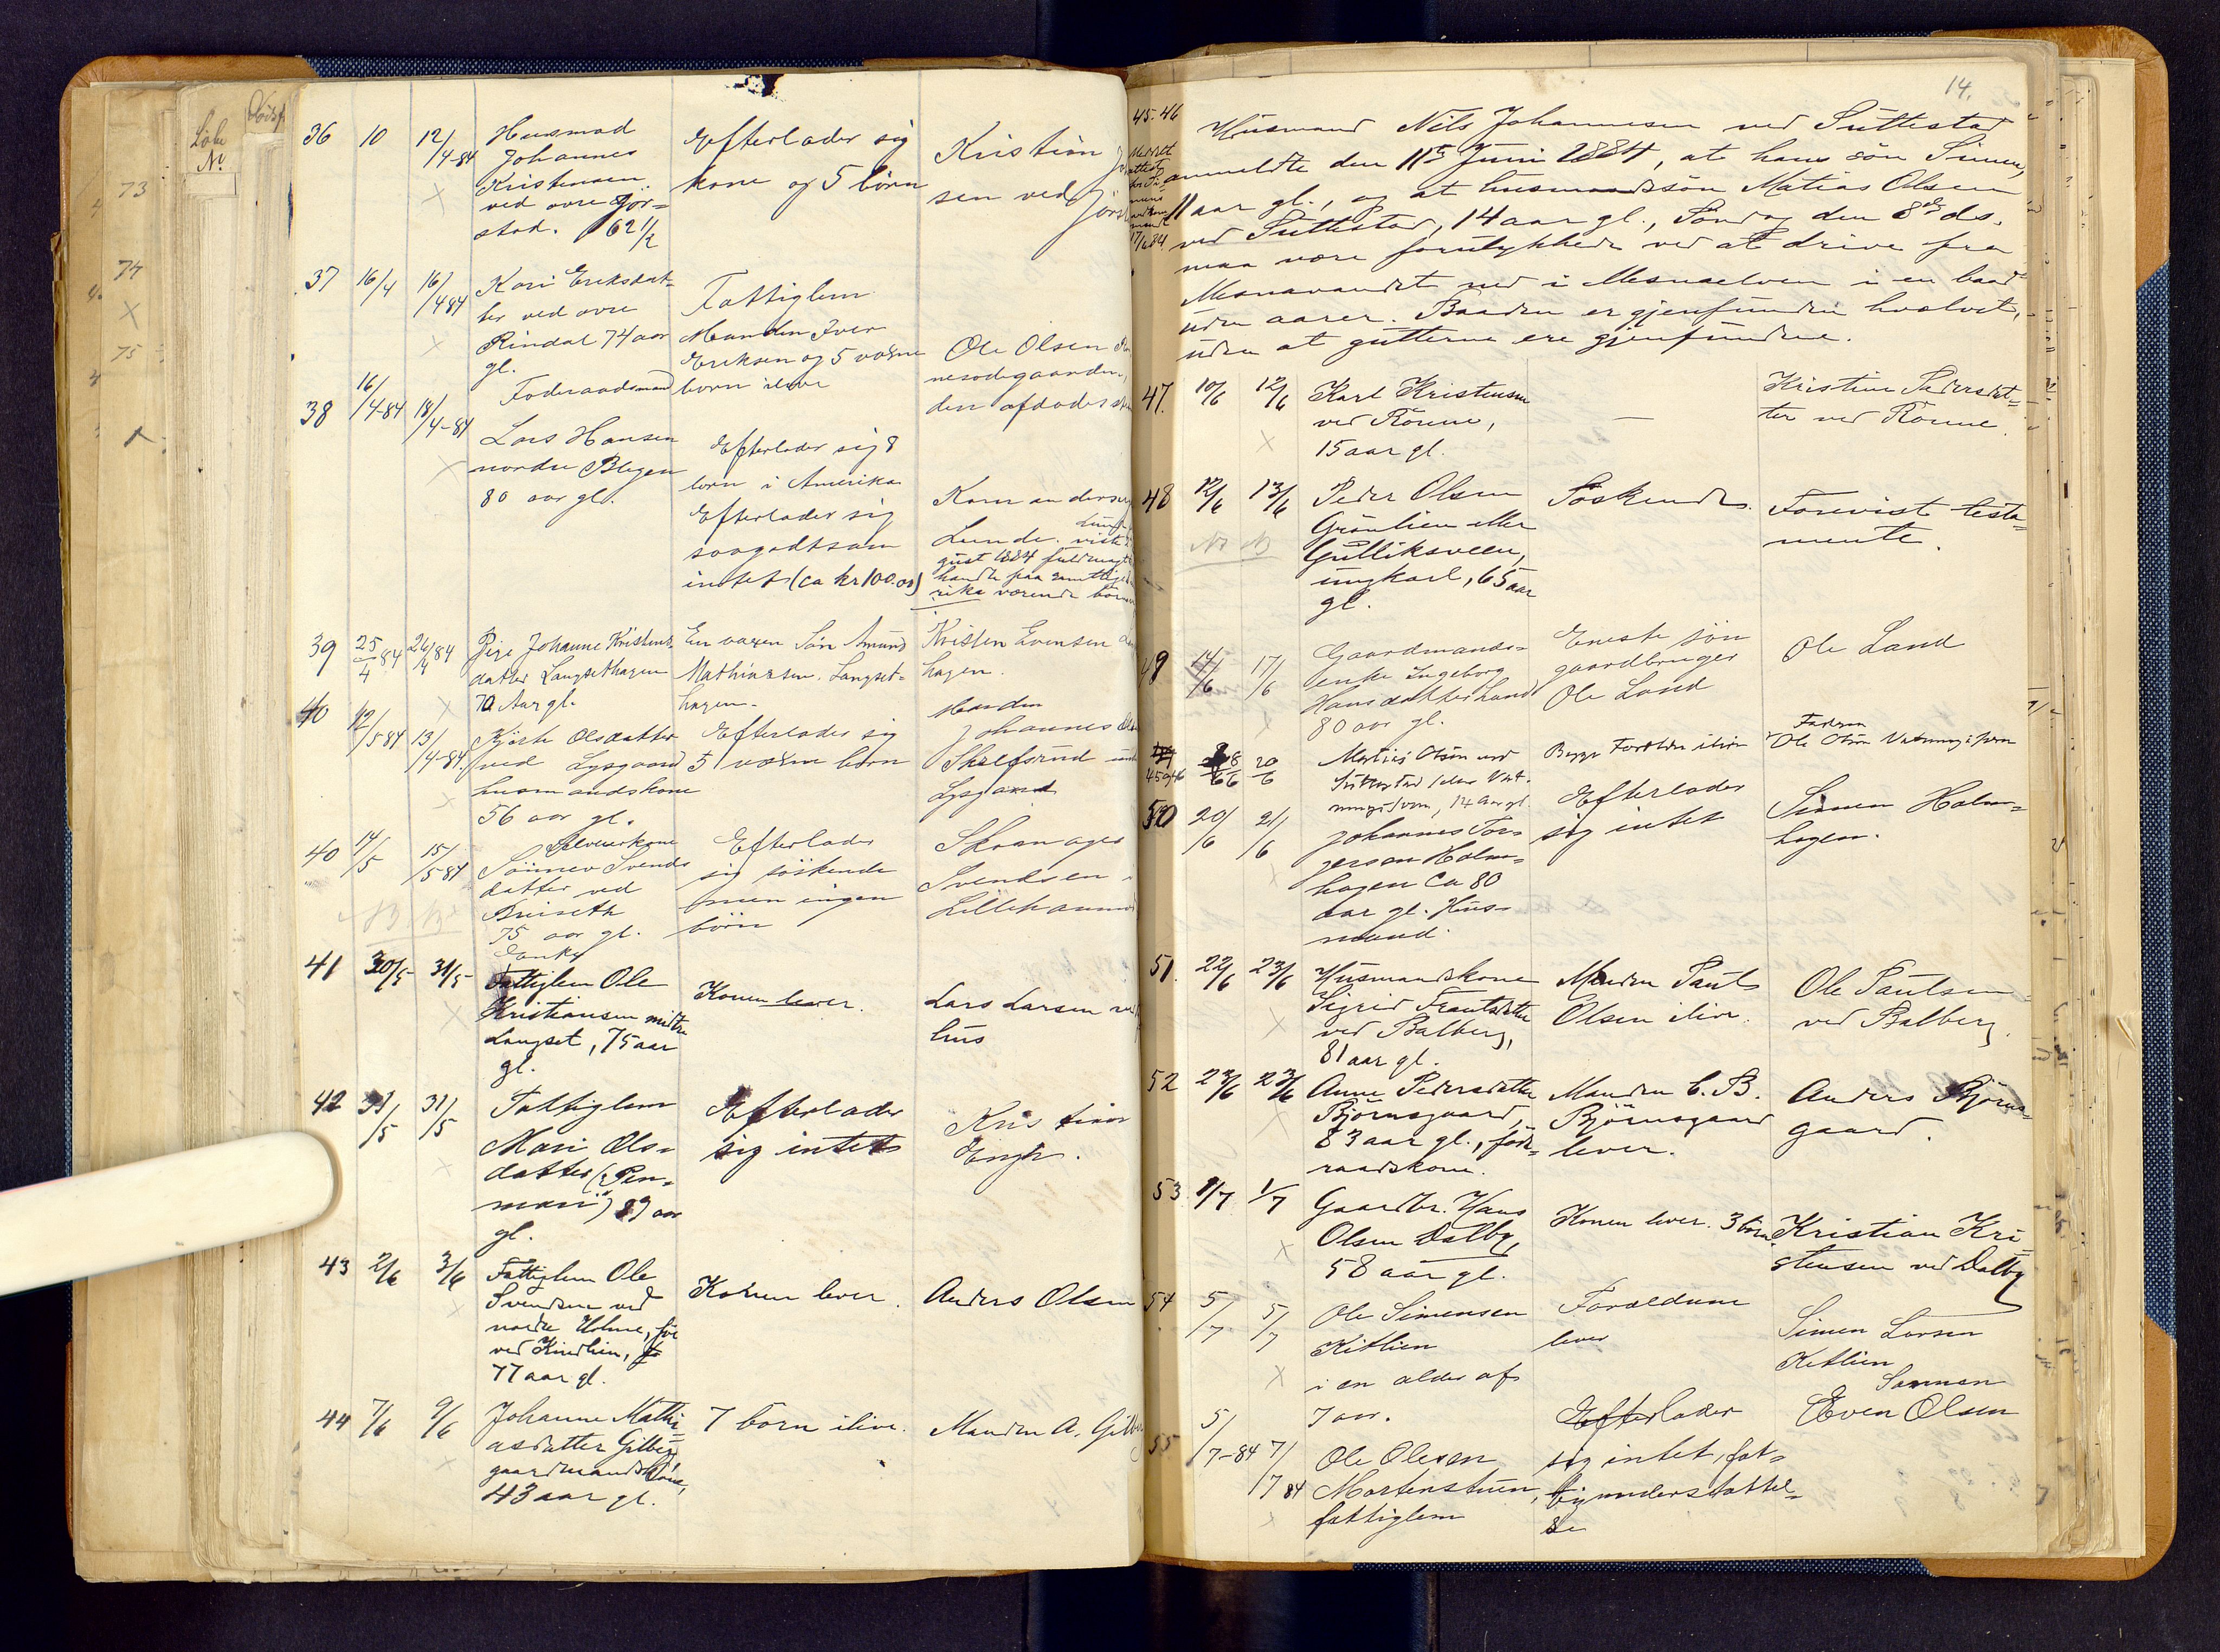 Løbe
No.
Dødsf
73
74
75
36 10 12/4-84
Husmand
Johannes
Kristensen
ved øvre Jør-
stad. 62 1/2
Efterlader sig
kone og 5 børn
Kristian
sen ved
37 16/4 16/4 84
Kari Eriksdat-
ter ved øvre
Rindal 74 aar
gl.
Fattiglem
Manden Iver
Eriksen og 5 voxne
børn ilive
Ole Olsen
den afdødes
38 16/4-84 18/4-84
Foderaadsmand
Lars Hansen
nordre Blegen
80 aar gl.
Efterlader sig 8
børn i Amerika
Efterlader sig
saagodtsom
intet (ca kr 100.00)
Lunde.
gust 1884
rika værende børn
39 25/4 84 26/4 84
Pige Johanne Kristens
datter Langsethagen
70 Aar gl.
En voxen Søn Amund
Mathiasen. Langset-
hagen.
Kristen Evensen
hagen.
40 12/5 84 13/4-84
Kjersti Olsdatter
ved Lysgaard
husmandskone
56 aar gl.
Efterlader sig
5 voxne børn
Manden
Johannes
Skrefsrud
Lysgaard
40 14/5 15/5 84
Sønnev Svends
datter ved
Bruseth
75 aar gl.
Efterlader
sig søskende
men ingen
børn
Skrædager
Svendsen
Lillehammer
NB NB
41 30/5 31/5
Fattiglem Ole
Kristiansen midtre
Langset, 75 aar
gl.
Konen lever.
Lars Larsen
hus
42 31/5 31/5
Fattiglem
Mari Ols-
datter (Pen-
mari") 89 aar
gl.
Efterlader
sig intet
Kristian
Engh.
43 2/6 3/6
Fattiglem Ole
Svendsen ved
nordre Holme, før
ved Kindlien,
77 aar gl.
Konen lever.
Anders Olsen
44 7/6 9/6
Johanne Mathi-
asdatter Gilberg
gaardmandskone,
43 aar gl.
7 børn ilive.
Manden A. Gilberg
14.
45-46
Meddelt
attest
17/6 84
Husmand Nils Johannesen ved Suttestad
anmeldte den 11te Juni 1884, at hans søn Simen,
11 aar gl., og at husmandssøn Matias Olsen
ved Suttestad, 14 aar gl., Søndag den 8de ds.
maa være forulykkede ved at drive fra
Mesnavandet ned i Mesnaelven i en baad
uden aarer. Baaden er gjenfunden hvælvet,
uden at gutterne ere gjenfundne.
47. 10/6 12/6
Karl Kristensen
ved Rønne,
15 aar gl.
—
Kristine Pedersdat-
ter ved Rønne.
48 12/6 13/6
Peder Olsen
Grønlien eller
Gulliksveen,
ungkarl, 65 aar
gl.
Søskende.
Forevist testa-
mente.
NB NB
49 14/6 17/6
Gaardmands-
enke Ingeborg
Hansdatter Land
80 aar gl.
Eneste søn
gaardbruger
Ole Land
Ole Land
45 og 46 8/6 20/6
Mathias Olsen ved
Suttestad
14 Aar gl.
Begge Forældre ilive
Faderen
Ole Olsen
50 20/6 21/6
Johannes Tor-
gersen Holm-
hagen ca 80
aar gl. Hus-
mand
Efterlader
sig intet
Simen Holm-
hagen.
51. 22/6 23/6
Husmandskone
Sigrid Frantsdatter
ved Balberg,
81 aar gl.
Manden Paul
Olsen ilive.
Ole Paulsen
ved Balberg
52 23/6 23/6
Anne Pedersdatter
Bjørnsgaard,
83 aar gl., føde-
raadskone.
Manden C. B.
Bjørnsgaard
lever.
Anders Bjørns-
gaard.
53 1/7 1/7
Gaardbr. Hans
Olsen Dalby,
58 aar gl.
Konen lever. 3 børn.
Kristian Kri-
stensen ved Dalby
54 5/7 5/7
Ole Simensen
Kitlien
i en alder af
7 aar.
Forældrene
lever
Simen Larsen
Kitlien
55 5/7-84 7/7 84
Ole Olesen
Mortenstuen,
fattiglem
Efterlader
sig intet, fat-
tigunderstøttel-
se
Sønnen
Even Olsen